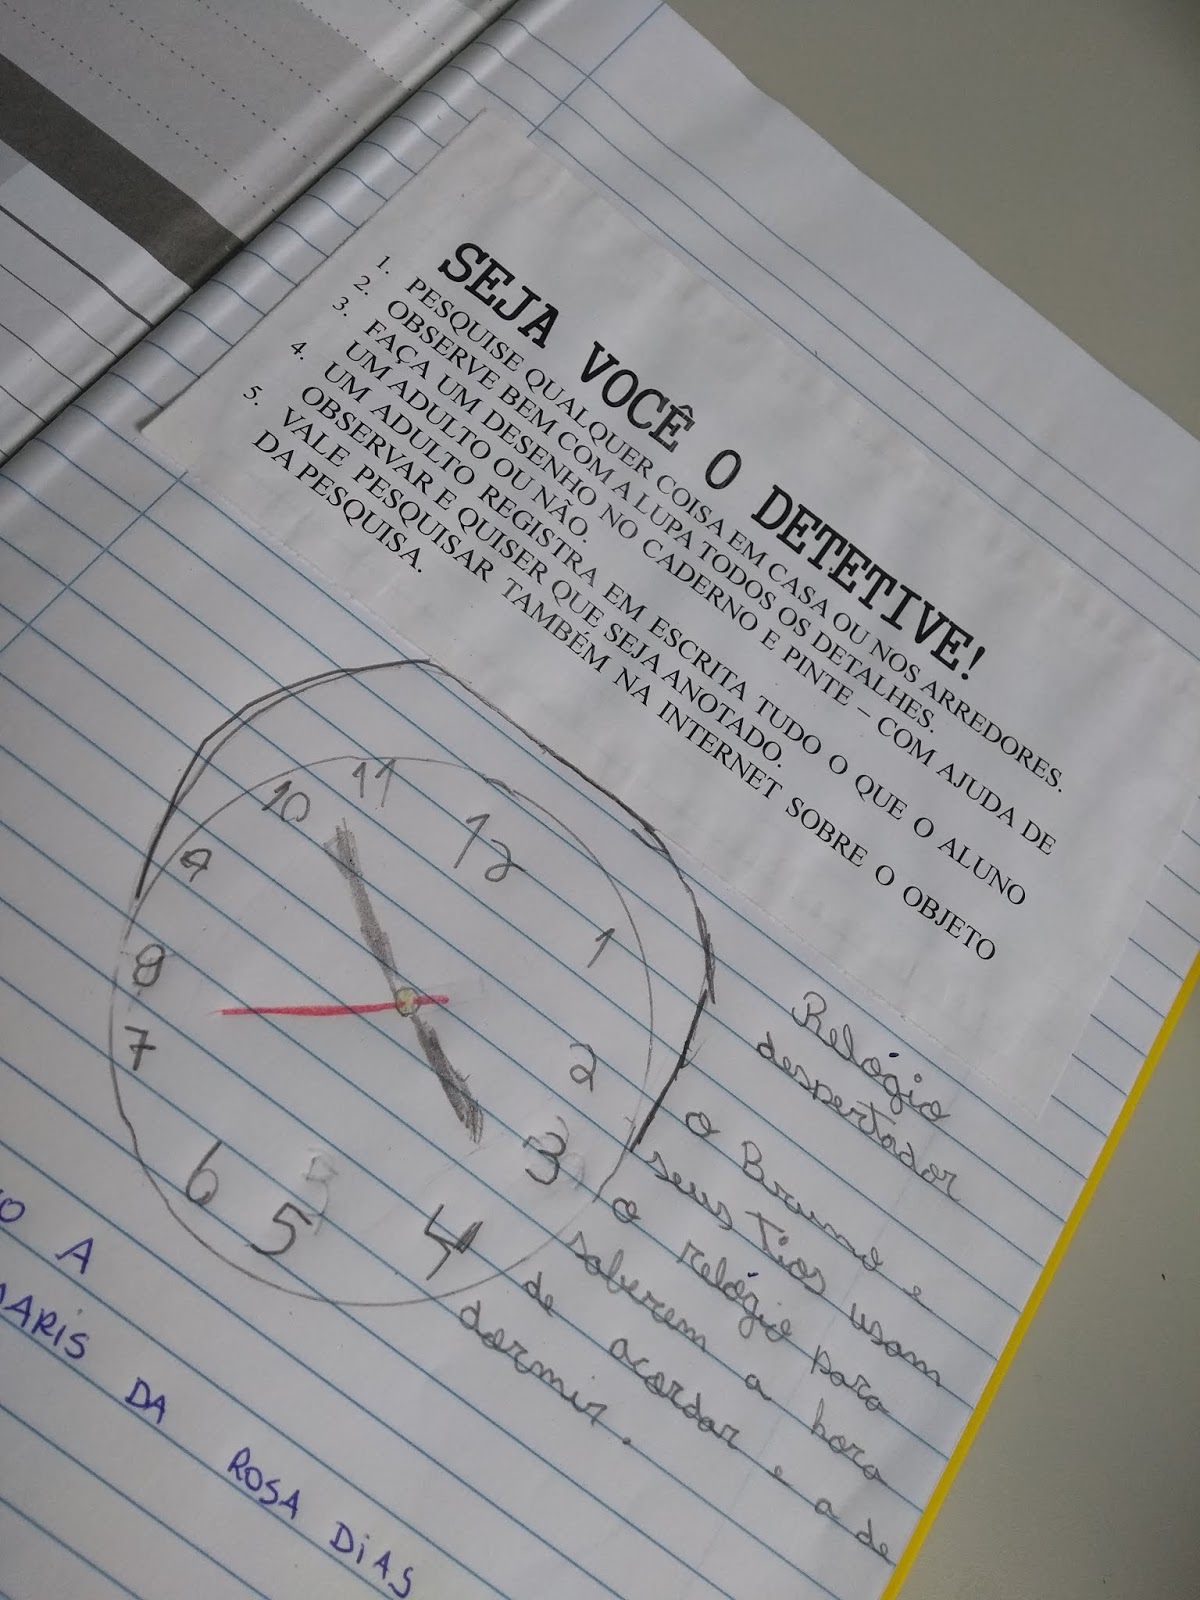 SEJA VOCÊ O DETETIVE!
1. PESQUISE QUALQUER COISA EM CASA OU NOS ARREDORES.
2. OBSERVE BEM COM A LUPA TODOS OS DETALHES.
3. FAÇA UM DESENHO NO CADERNO E PINTE – COM AJUDA DE
UM ADULTO OU NÃO.
4. UM ADULTO REGISTRA EM ESCRITA TUDO O QUE O ALUNO
OBSERVAR E QUISER QUE SEJA ANOTADO.
5. VALE PESQUISAR TAMBÉM NA INTERNET SOBRE O OBJETO
DA PESQUISA.
12
1
2
3
4
5
6
7
8
9
10
11
Relógio
despertador
o Bruno e
seus tios usam
o relógio para
saberem a hora
de acordar e a de
dormir.
A
DA ROSA DIAS